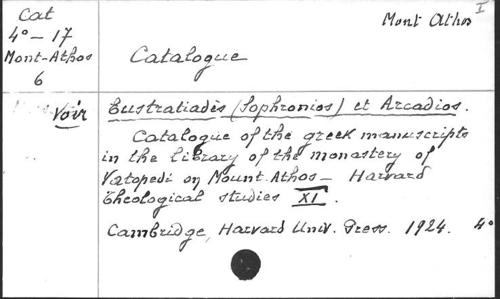 Cat
4° – 17
Mont-Athos
6
I
Mont Athos
Catalogue
Voir
Eustratiadès (Sophronios) et Arcadios.
Catalogue of the greek manuscripts
in the library of the monastery of
Vatopedi on Mount Athos – Harvard
Theological studies XI.
Cambridge, Harvard Univ. Press. 1924. 4°